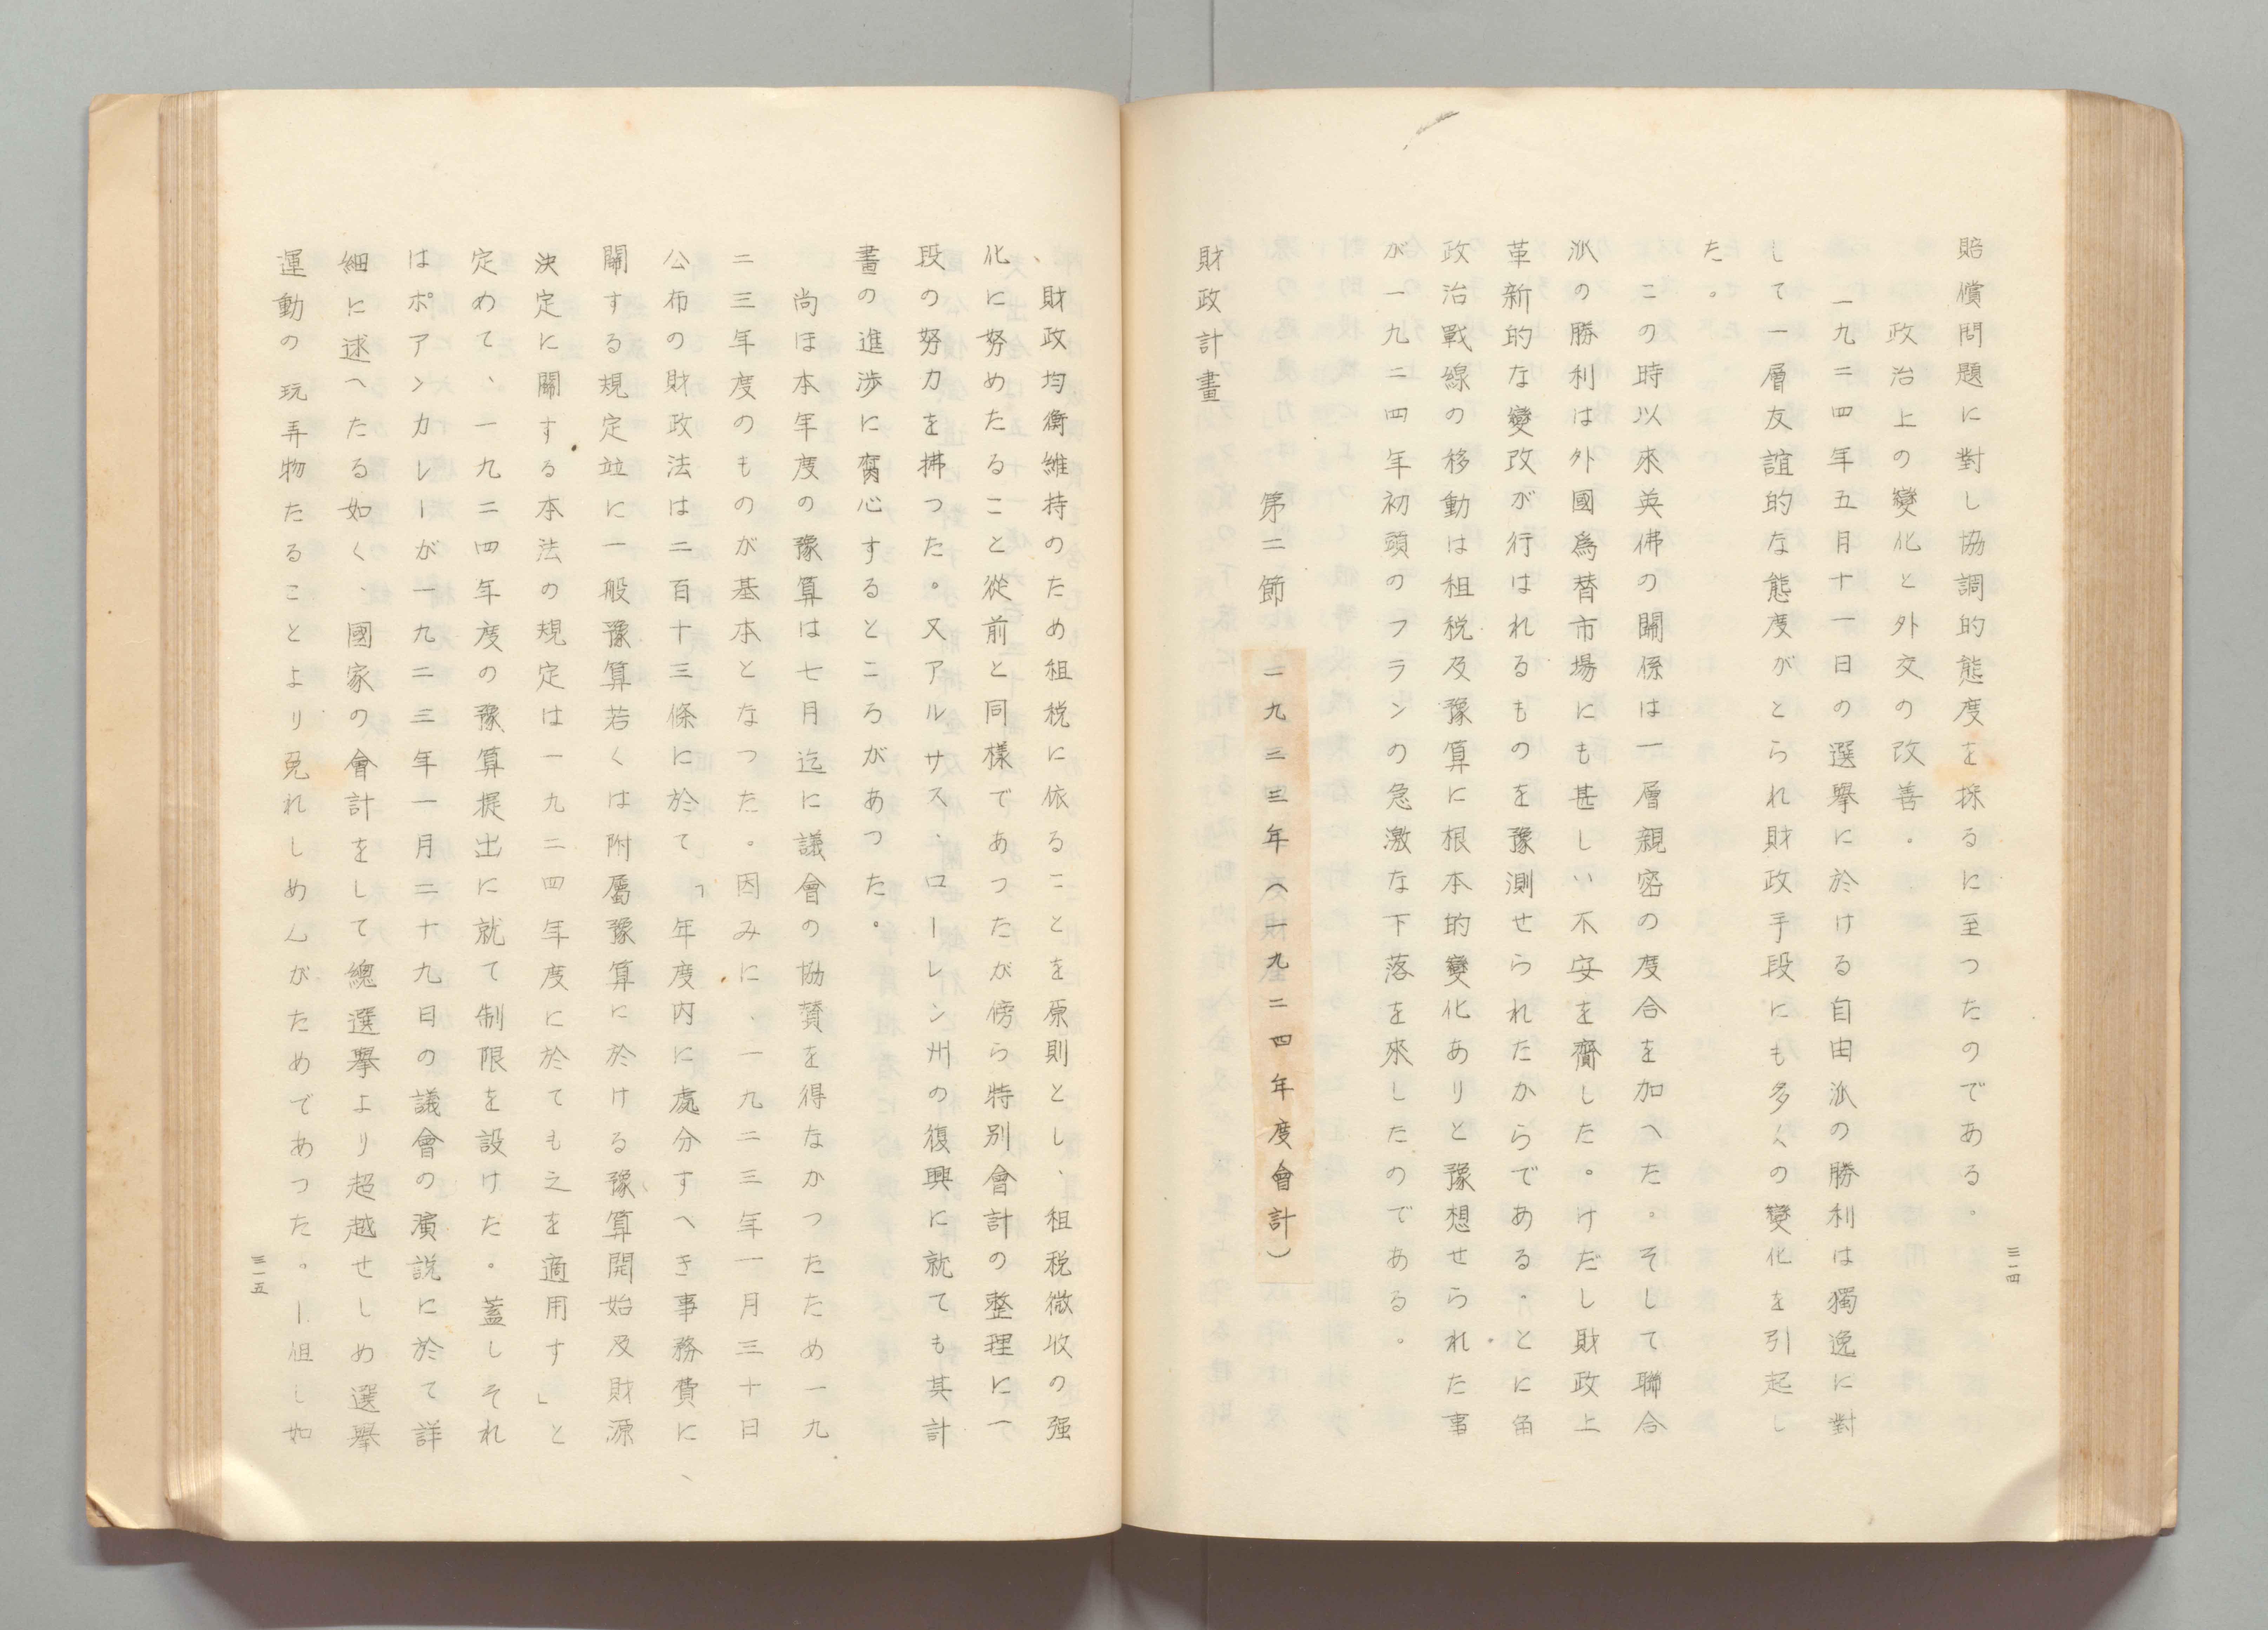 賠償問題に對し協調的態度を採るに至つたのである。
政治上の變化と外交の改善.
一九二四年五月十一日の選擧に於ける自由派の勝利は獨逸に對
して一層友誼的な態度がとられ財政手段にも多くの變化を引起し
た。
この時以來英佛の關係は一層親密の度合を加へた。そして聯合
派の勝利は外國爲替市場にも甚しい不安を齎した。けだし財政上
革新的な變改が行はれるものを豫測せられたからである.とに角
政治戰線の移動は租税及豫算に根本的變化ありと豫想せられた事
が一九二四年初頭のフランの急激な下落を來したのである。
第二節 一九二三年(一九二四年度會計)
財政計畫
三一四
、財政均衡維持のため租税に依ることを原則とし、租税徴收の强
化に努めたること從前と同樣であつたが傍ら特別會計の整理に一
段の努力を拂つた。又アルサス、ローレン州の復興に就ても其計
畫の進渉に腐心するところがあつた。
尚ほ本年度の豫算は七月迄に議會の協贊を得なかつたため一九
二三年度のものが基本となつた。因みに、一九二三年一月三十日
公布の財政法は二百十三條に於て「年度内に處分すべき事務費に
關する規定竝に一般豫算若くは附屬豫算に於ける豫算開始及財源
決定に關する本法の規定は一九二四年度に於ても之を適用す」と
定めて、一九二四年度の豫算提出に就て制限を設けた。蓋しそれ
はポアンカレーが一九二三年一月二十九日の議會の演説に於て詳
細に逑へたる如く、國家の會計をして總選擧より超越せしめ選擧
運動の玩弄物たることより免れしめんがためであつた。ー但し如
三一五